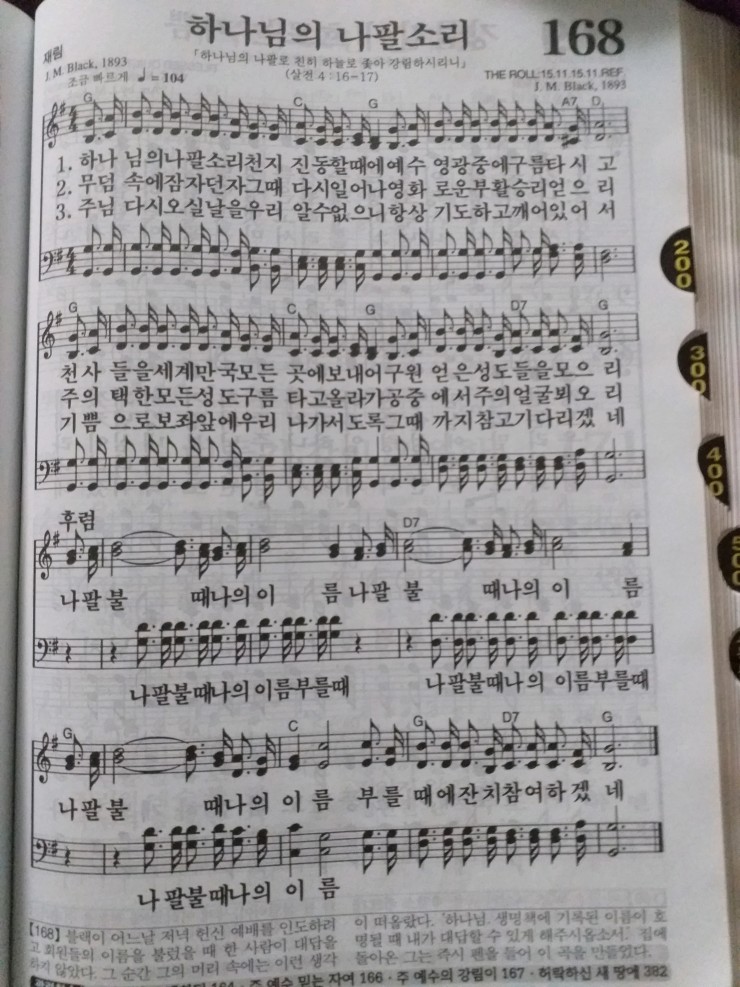 하나님의 나팔소리 168
재림
「하나님의 나팔로 친히 하늘로 좇아 강림하시리니」
J. M. Black, 1893
조금 빠르게 ♩=104
(살전 4 : 16-17)
THE ROLL:15.11.15.11.REF.
J. M. Black, 1893
G C G A7 D
1. 하나 님의나팔소리천지 진동할때에예수 영광중에구름타 시 고
2. 무덤 속에잠자던자그때 다시일어나영화 로운부활승리얻 으 리
3. 주님 다시오실날을우리 알수없으니항상 기도하고깨어있 어 서
G C G D7 G
천사 들을세계만국모든 곳에보내어구원 얻은성도들을모으 리
주의 택한모든성도구름 타고올라가공중 에서주의얼굴뵈오 리
기쁨 으로보좌앞에우리 나가서도록그때 까지참고기다리겠 네
후렴
D7
나팔 불 때나의 이 름 나팔 불 때나의 이 름
나팔불때나의이름부를때 나팔불때나의 이름부를때
G C G D7 G
나팔 불 때나의 이 름 부를 때에잔치참여하겠 네
나팔불때나의 이 름
[168] 블랙이 어느날 저녁 헌신 예배를 인도하려
고 회원들의 이름을 불렀을 때 한 사람이 대답을
하지 않았다. 그 순간 그의 머리 속에는 이런 생각
이 떠올랐다. '하나님. 생명책에 기록된 이름이 호
명될 때 내가 대답할 수 있게 해주시옵소서.' 집에
돌아온 그는 즉시 펜을 들어 이 곡을 만들었다.
164 · 주 예수 믿는 자여 166 · 주 예수의 강림이 167 · 허락하신 새 땅에 382
200
300
400
500